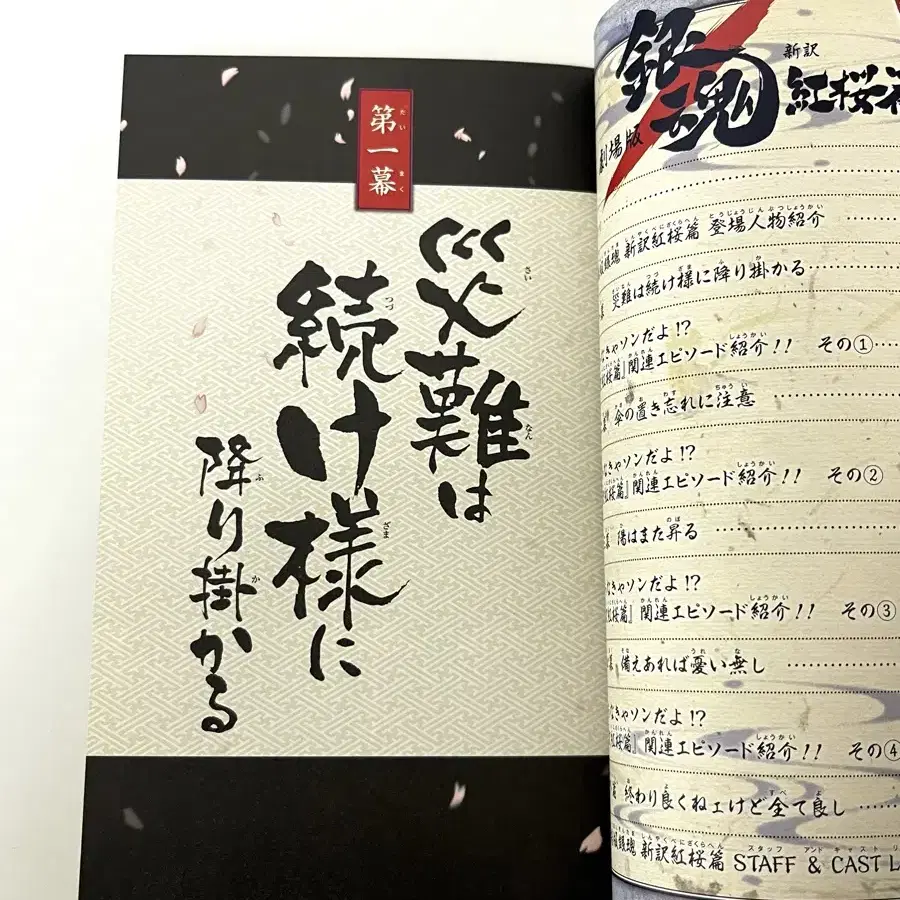 第一幕
災難は
続け様に
降り掛かる
銀魂
新訳
紅桜
場版
新訳紅桜篇 登場人物紹介
災難は続け様に降り掛かる
きゃソンだよ!?
紅桜篇』関連エピソード紹介!! その①
傘の置き忘れに注意
きゃソンだよ!?
紅桜篇』関連エピソード紹介!! その②
陽はまた昇る
なきゃソンだよ!?
紅桜篇』関連エピソード紹介!! その③
備えあれば憂い無し
なきゃソンだよ!?
紅桜篇』関連エピソード紹介!! その④
終わり良くねェけど全て良し
銀魂 新訳紅桜篇 STAFF & CAST L